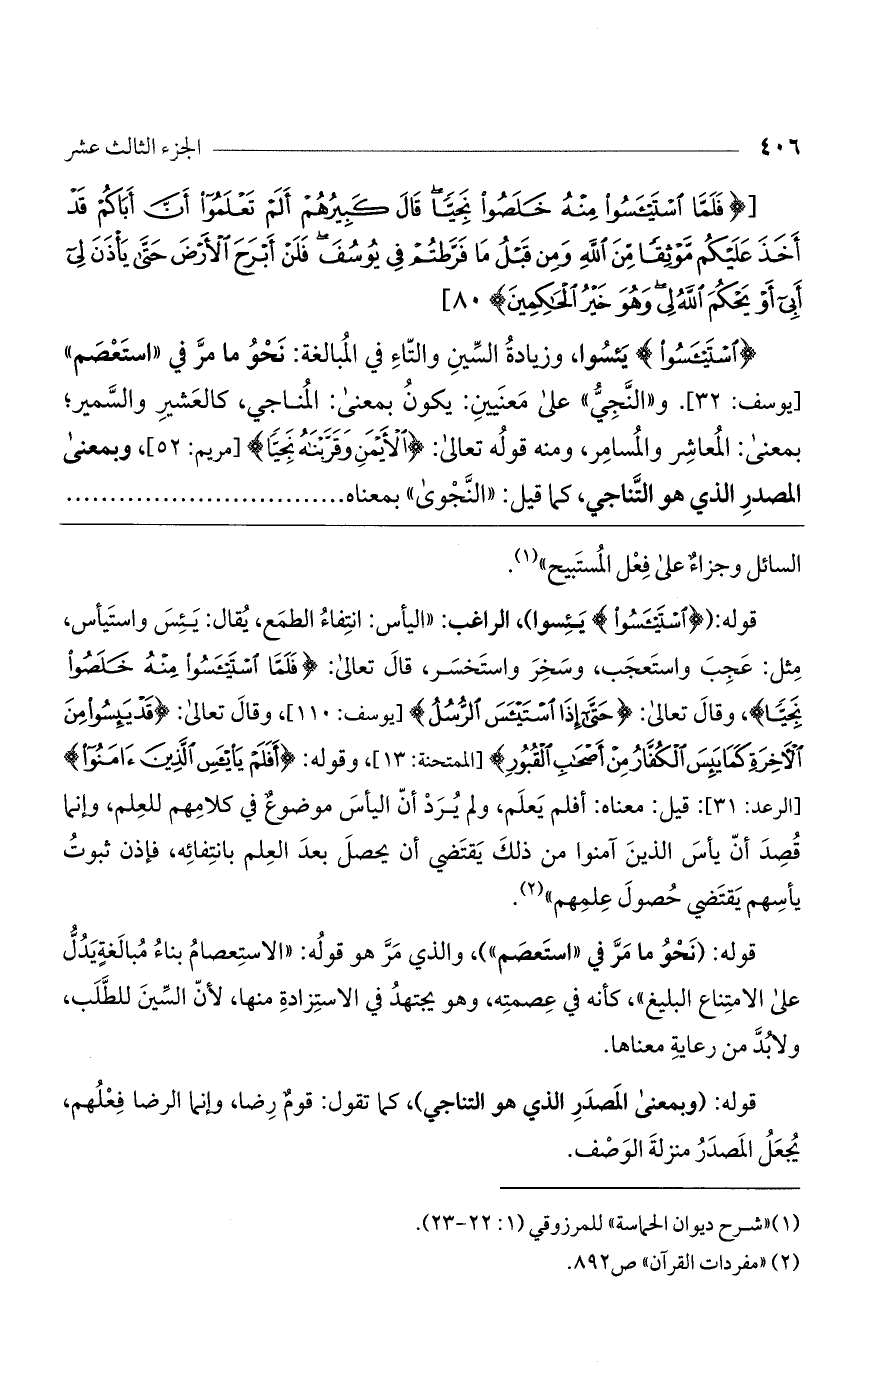 ٤٠٦ الجزء الثالث عشر
[﴿فَلَمَّا ٱسْتَيْـَٔسُوا۟ مِنْهُ خَلَصُوا۟ نَجِيًّا ۖ قَالَ كَبِيرُهُمْ أَلَمْ تَعْلَمُوٓا۟ أَنَّ أَبَاكُمْ قَدْ
أَخَذَ عَلَيْكُم مَّوْثِقًا مِّنَ ٱللَّهِ وَمِن قَبْلُ مَا فَرَّطتُمْ فِى يُوسُفَ ۖ فَلَنْ أَبْرَحَ ٱلْأَرْضَ حَتَّىٰ يَأْذَنَ لِىٓ
أَبِىٓ أَوْ يَحْكُمَ ٱللَّهُ لِى ۖ وَهُوَ خَيْرُ ٱلْحَٰكِمِينَ﴾ ٨٠]
﴿ٱسْتَيْـَٔسُوا۟﴾ يَئِسُوا، وزيادةُ السِّينِ والتّاءِ في المُبالغة: نَحْوُ ما مرَّ في «استَعْصَم»
[يوسف: ٣٢]. و«النَّجِيُّ» علىٰ مَعنَيينِ: يكونُ بمعنىٰ: المُناجي، كالعَشيرِ والسَّمير؛
بمعنىٰ: المُعاشِر والمُسامِر، ومنه قولُه تعالىٰ: ﴿ٱلْأَيْمَنِ وَقَرَّبْنَٰهُ نَجِيًّا﴾ [مريم: ٥٢]، وبمعنىٰ
المصدرِ الذي هو التَّناجي، كما قيل: «النَّجْوىٰ» بمعناه................................
السائل وجزاءٌ علىٰ فِعْل المُستَبيح»(١).
قوله: (﴿ٱسْتَيْـَٔسُوا۟﴾ يَئِسوا)، الراغب: «اليأس: انتِفاءُ الطمَع، يُقال: يَئِسَ واستَيأس،
مِثل: عَجِبَ واستَعجَب، وسَخِرَ واستَخسَر، قالَ تعالىٰ: ﴿فَلَمَّا ٱسْتَيْـَٔسُوا۟ مِنْهُ خَلَصُوا۟
نَجِيًّا﴾، وقالَ تعالىٰ: ﴿حَتَّىٰٓ إِذَا ٱسْتَيْـَٔسَ ٱلرُّسُلُ﴾ [يوسف: ١١٠]، وقالَ تعالىٰ: ﴿قَدْ يَئِسُوا۟ مِنَ
ٱلْـَٔاخِرَةِ كَمَا يَئِسَ ٱلْكُفَّارُ مِنْ أَصْحَٰبِ ٱلْقُبُورِ﴾ [الممتحنة: ١٣]، وقوله: ﴿أَفَلَمْ يَا۟يْـَٔسِ ٱلَّذِينَ ءَامَنُوٓا۟﴾
[الرعد: ٣١]: قيل: معناه: أفلم يَعلَم، ولم يُرَدْ أنّ اليأسَ موضوعٌ في كلامِهم للعِلم، وإنما
قُصِدَ أنّ يأسَ الذينَ آمنوا من ذلكَ يَقتَضي أن يحصلَ بعدَ العِلم بانتِفائِه، فإذن ثبوتُ
يأسِهم يَقتَضي حُصولَ عِلمِهم»(٢).
قوله: (نَحْوُ ما مَرَّ في «استَعصَم»)، والذي مَرَّ هو قولُه: «الاستِعصامُ بناءُ مُبالَغةٍ يَدُلُّ
علىٰ الامتِناع البليغ»، كأنه في عِصمتِه، وهو يجتهدُ في الاستِزادةِ منها، لأنّ السِّينَ للطَّلَب،
ولابُدَّ من رعايةِ معناها.
قوله: (وبمعنىٰ المَصدَرِ الذي هو التناجي)، كما تقول: قومٌ رِضا، وإنما الرضا فِعْلُهم،
يُجعَلُ المَصدَرُ منزلةَ الوَصْف.
(١) «شرح ديوان الحماسة» للمرزوقي (١: ٢٢-٢٣).
(٢) «مفردات القرآن» ص٨٩٢.